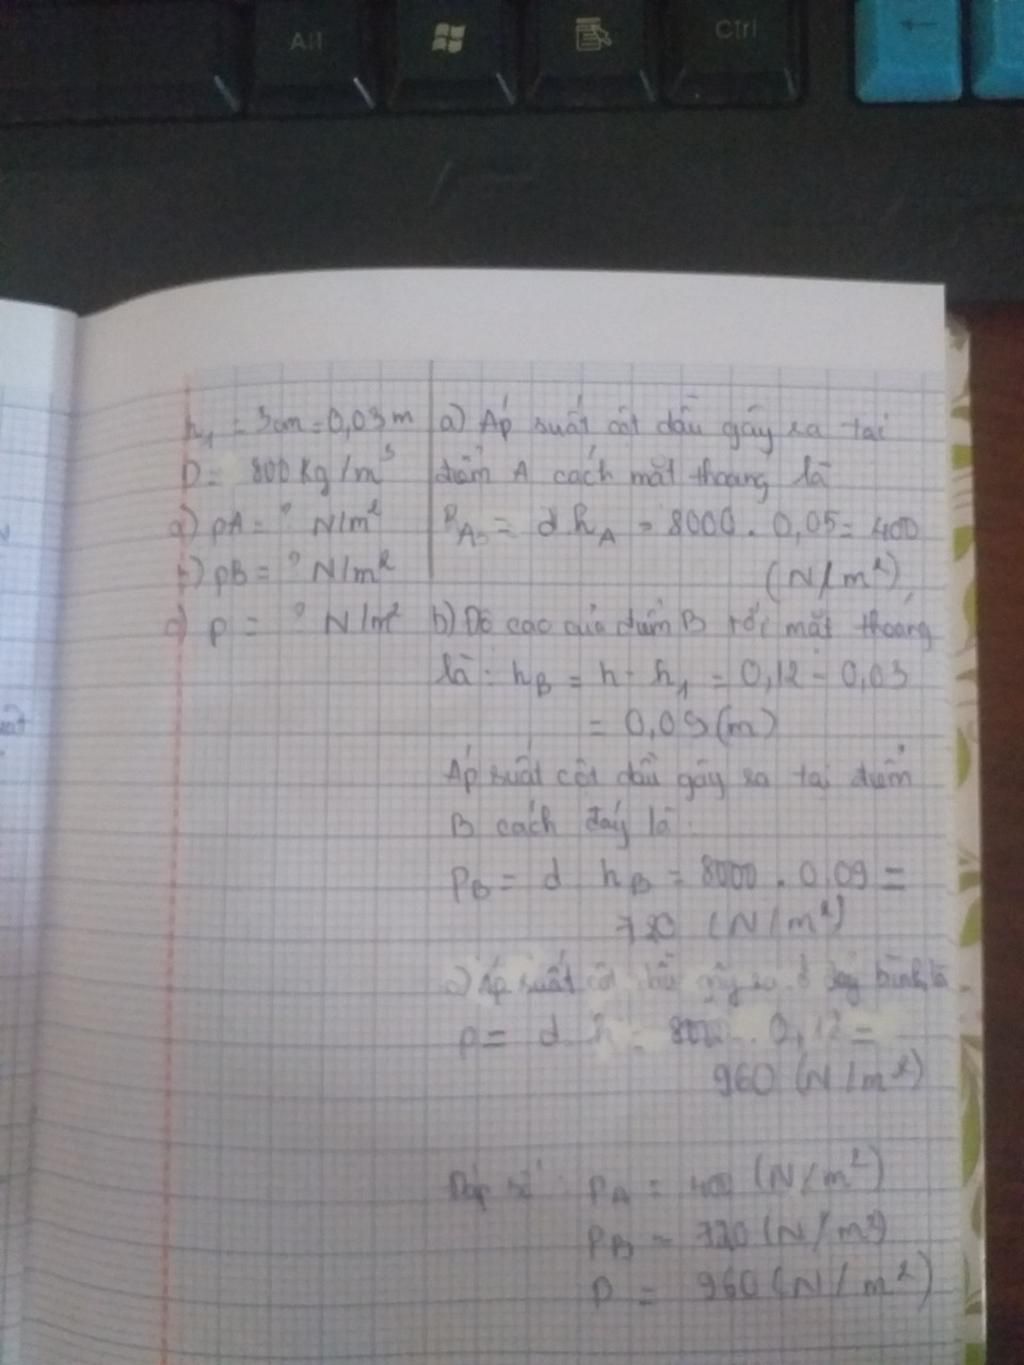 Alt
Ctrl
h₁ = 3cm = 0,03 m
D = 800 kg/m³
a) pA = ? N/m²
b) pB = ? N/m²
c) p = ? N/m²
a) Áp suất cột dầu gây ra tại
điểm A cách mặt thoáng là
PA = d hA = 8000 . 0,05 = 400
(N/m²)
b) Độ cao của điểm B tới mặt thoáng
là: hB = h - h₁ = 0,12 - 0,03
= 0,09 (m)
Áp suất cột dầu gây ra tại điểm
B cách đáy là
PB = d hB = 8000 . 0,09 =
720 (N/m²)
c) Áp suất cột dầu gây ra ở đáy bình là
p = d h = 0,12 =
960 (N/m²)
Đáp số: PA = 400 (N/m²)
PB = 720 (N/m²)
P = 960 (N/m²)